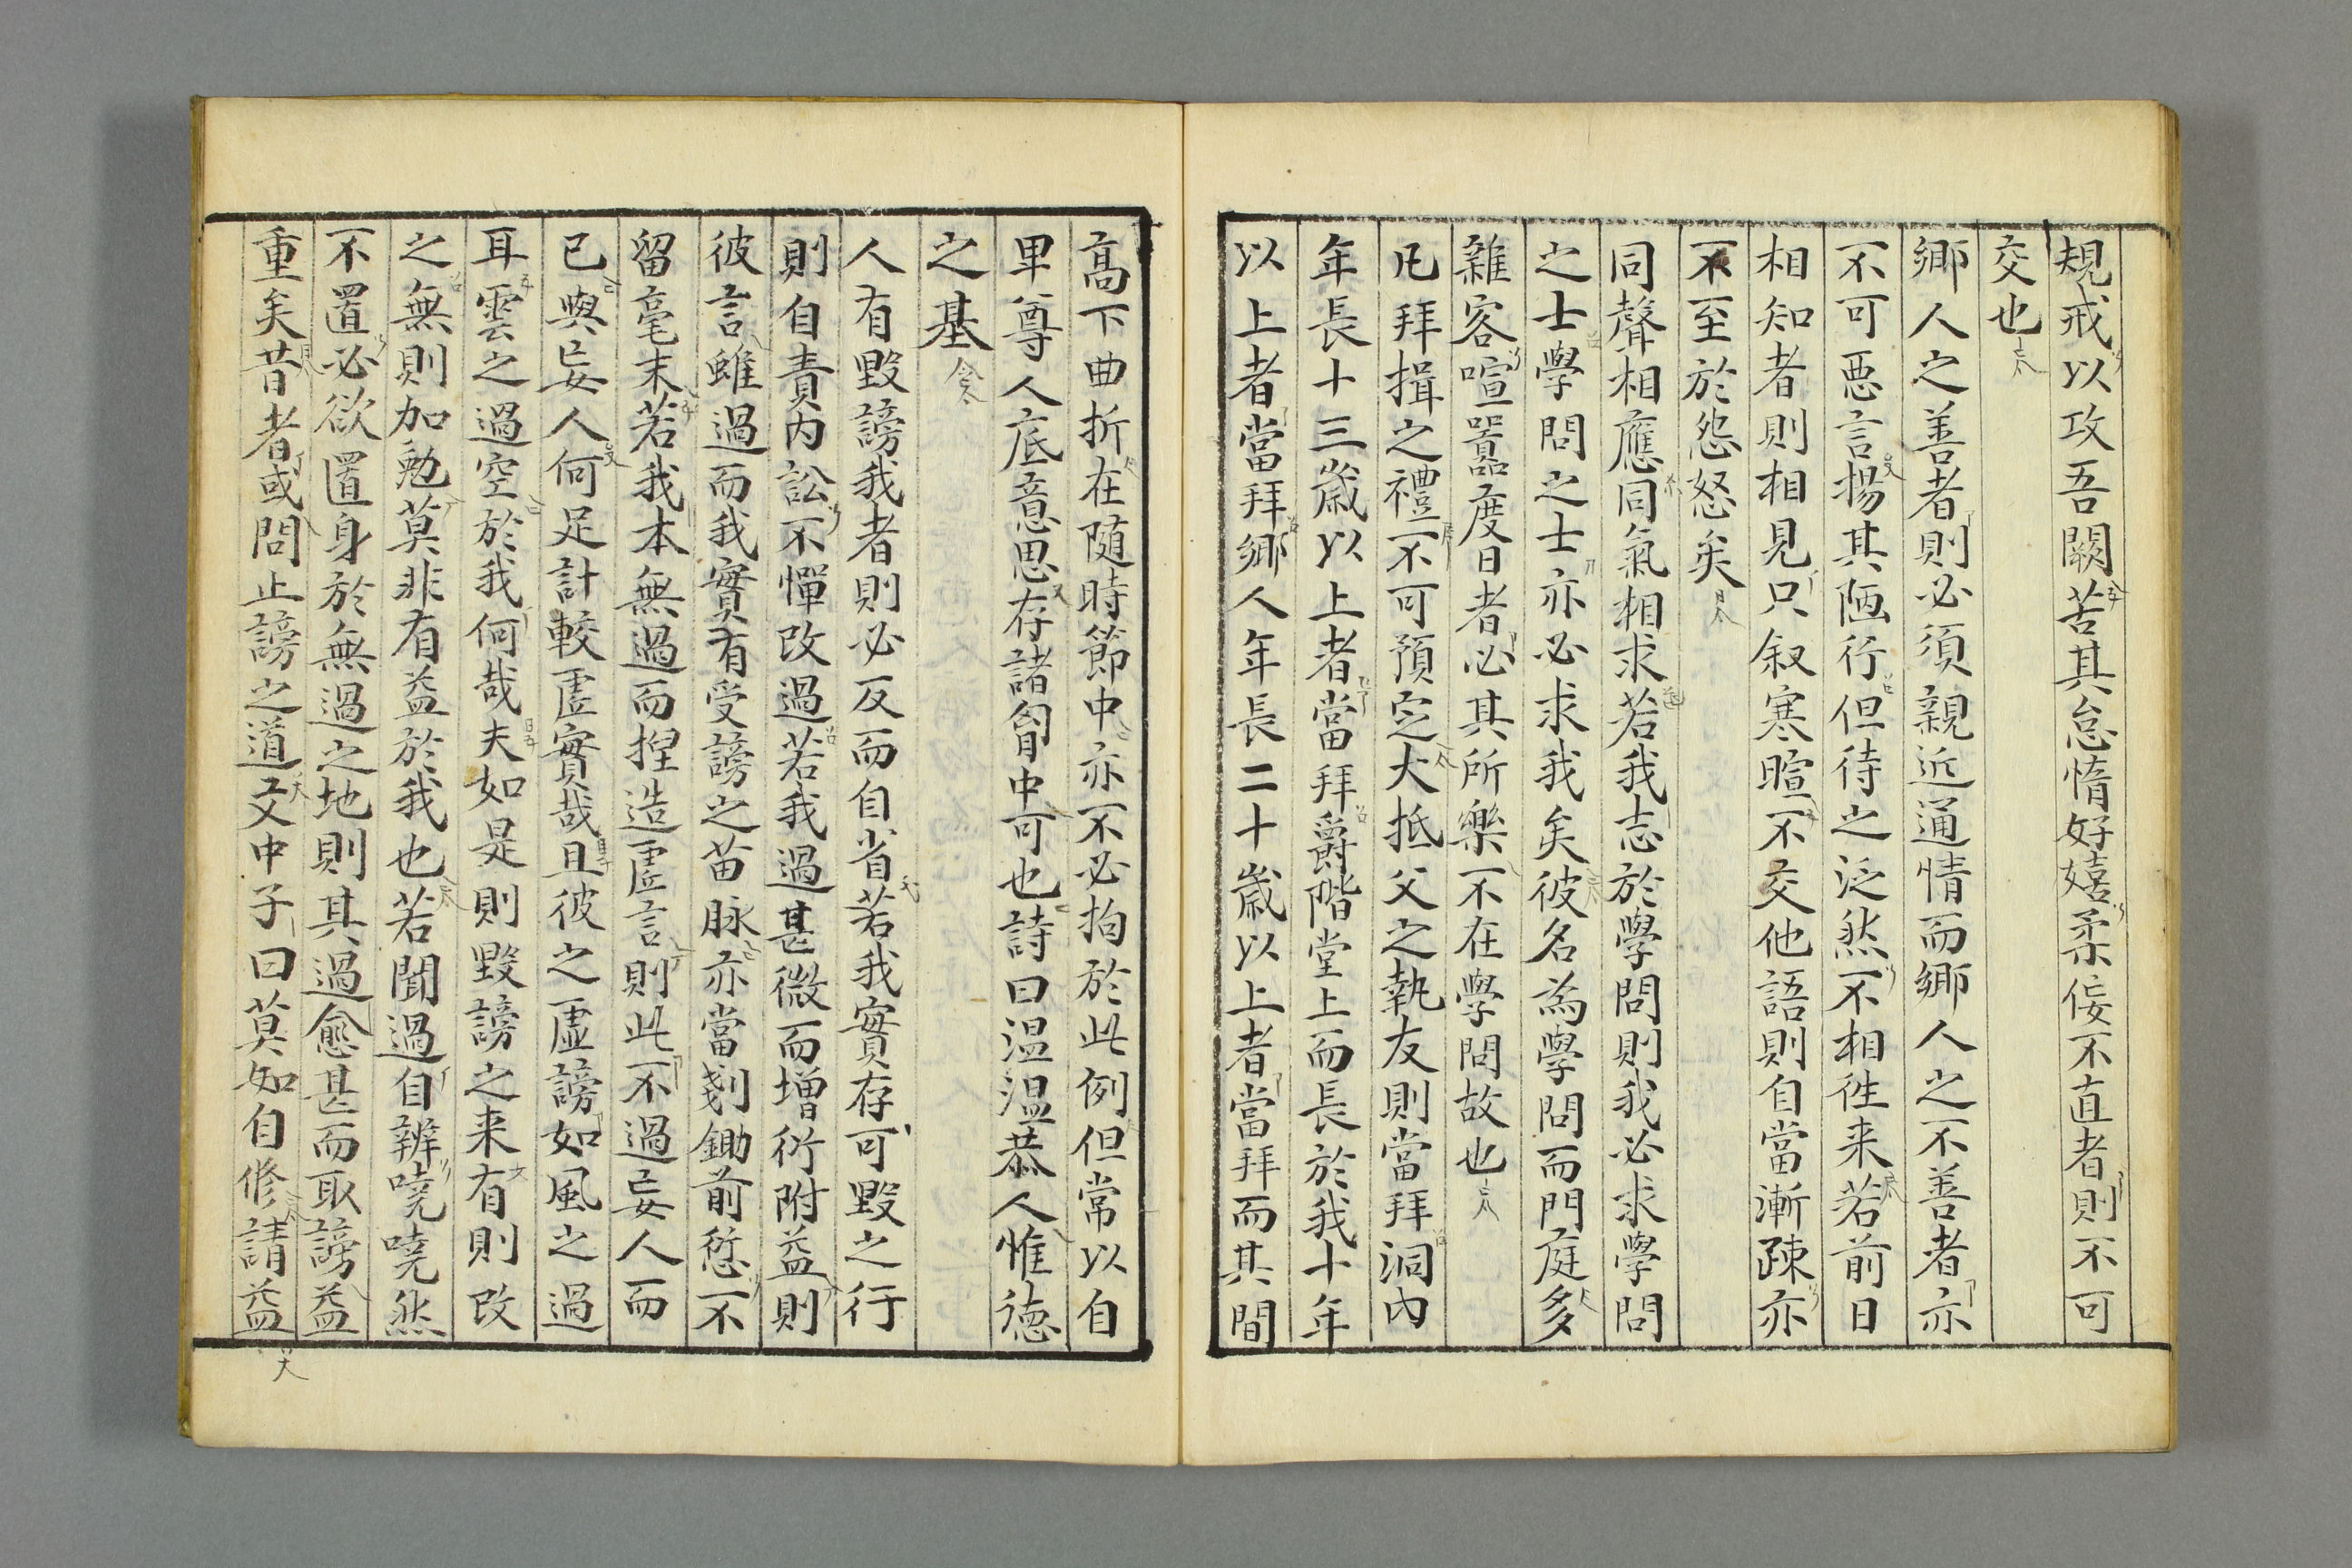 規戒以攻吾闕苦其怠惰好嬉柔侫不直者則不可
交也
鄉人之善者則必須親近通情而鄉人之不善者亦
不可惡言揚其陋行但待之泛然不相徃来若前日
相知者則相見只叙寒暄不交他語則自當漸踈亦
不至於怨怒矣
同聲相應同氣相求若我志於學問則我必求學問
之士學問之士亦必求我矣彼名為學問而門庭多
雜客喧囂度日者必其所樂不在學問故也
凡拜揖之禮不可預定大抵父之執友則當拜洞內
年長十三歲以上者當拜爵階堂上而長於我十年
以上者當拜鄉人年長二十歲以上者當拜而其間
高下曲折在隨時節中亦不必拘於此例但常以自
卑尊人底意思存諸胷中可也詩曰温温恭人惟德
之基
人有毀謗我者則必反而自省若我實存可毀之行
則自責內訟不憚改過若我過甚微而增衍附益則
彼言雖過而我實有受謗之苗脉亦當剗鋤前愆不
留毫末若我本無過而揑造虛言則此不過妄人而
已與妄人何足計較虛實哉且彼之虛謗如風之過
耳雲之過空於我何哉夫如是則毀謗之来有則改
之無則加勉莫非有益於我也若聞過自辨嘵嘵然
不置必欲置身於無過之地則其過愈甚而取謗益
重矣昔者或問止謗之道文中子曰莫如自修請益